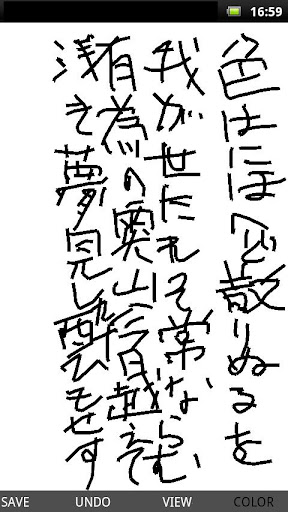 16:59
色はにほへど散りぬるを
我が世たれそ常ならむ
有為の奥山今日越えて
浅き夢見し酔ひもせす
SAVE UNDO VIEW COLOR